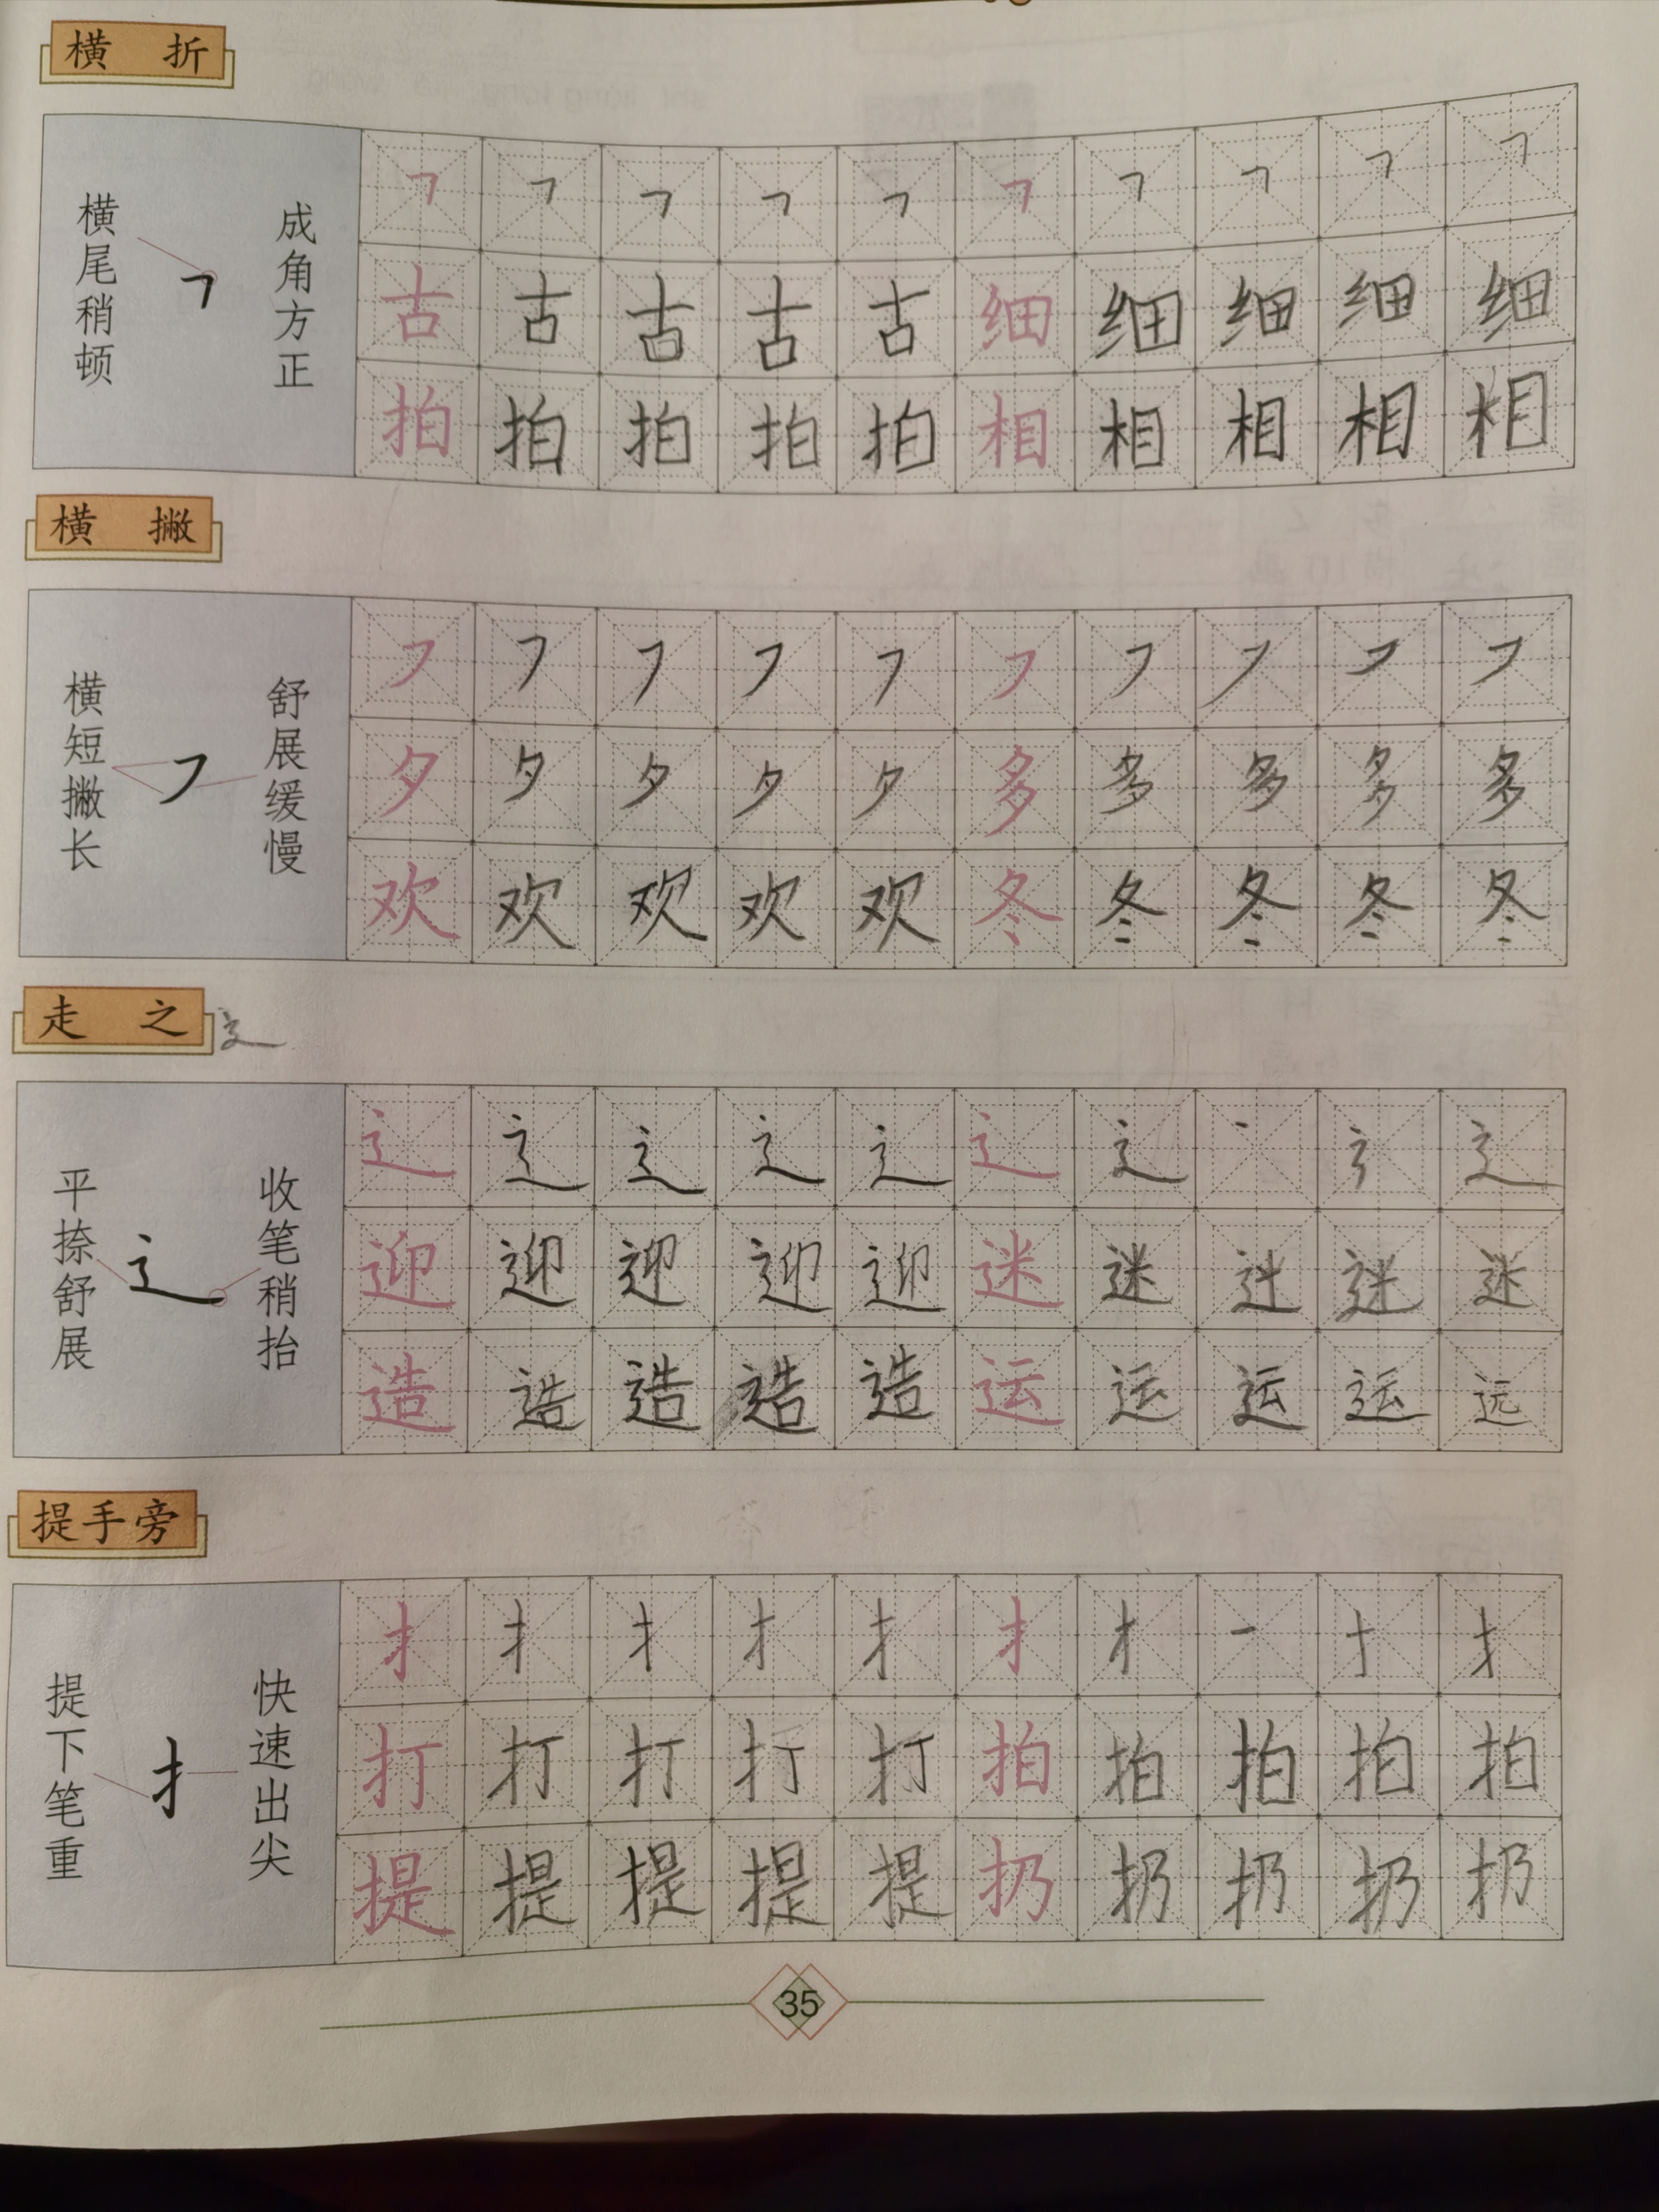 横 折
横尾稍顿
成角方正
㇕ ㇕ ㇕ ㇕ ㇕ ㇕ ㇕ ㇕ ㇕ ㇕
古 古 古 古 古 细 细 细 细 细
拍 拍 拍 拍 拍 相 相 相 相 相
横 撇
横短撇长
舒展缓慢
㇇ ㇇ ㇇ ㇇ ㇇ ㇇ ㇇ ㇇ ㇇ ㇇
夕 夕 夕 夕 夕 多 多 多 多 多
欢 欢 欢 欢 欢 冬 冬 冬 冬 冬
走 之 辶
平捺舒展
辶
收笔稍抬
辶 辶 辶 辶 辶 辶 辶 丶 辶
迎 迎 迎 迎 迎 迷 迷 迷 迷
造 造 造 造 造 运 运 运 运 远
提手旁
提下笔重
扌
快速出尖
扌 扌 扌 扌 扌 扌 扌 一 扌
打 打 打 打 打 拍 拍 拍 拍 拍
提 提 提 提 提 扔 扔 扔 扔 扔
35